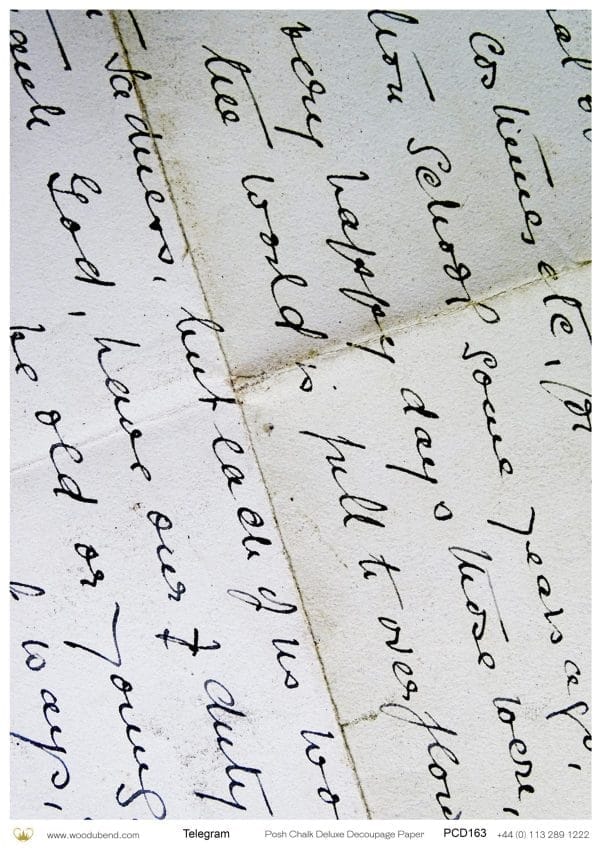 Costumes etc, for
School some years ago,
very happy days those were,
the world is full to overflow
Sadness, but each of us wo
God, have our duty
be old or young
ways,
www.woodubend.com Telegram Posh Chalk Deluxe Decoupage Paper PCD163 +44 (0) 113 289 1222